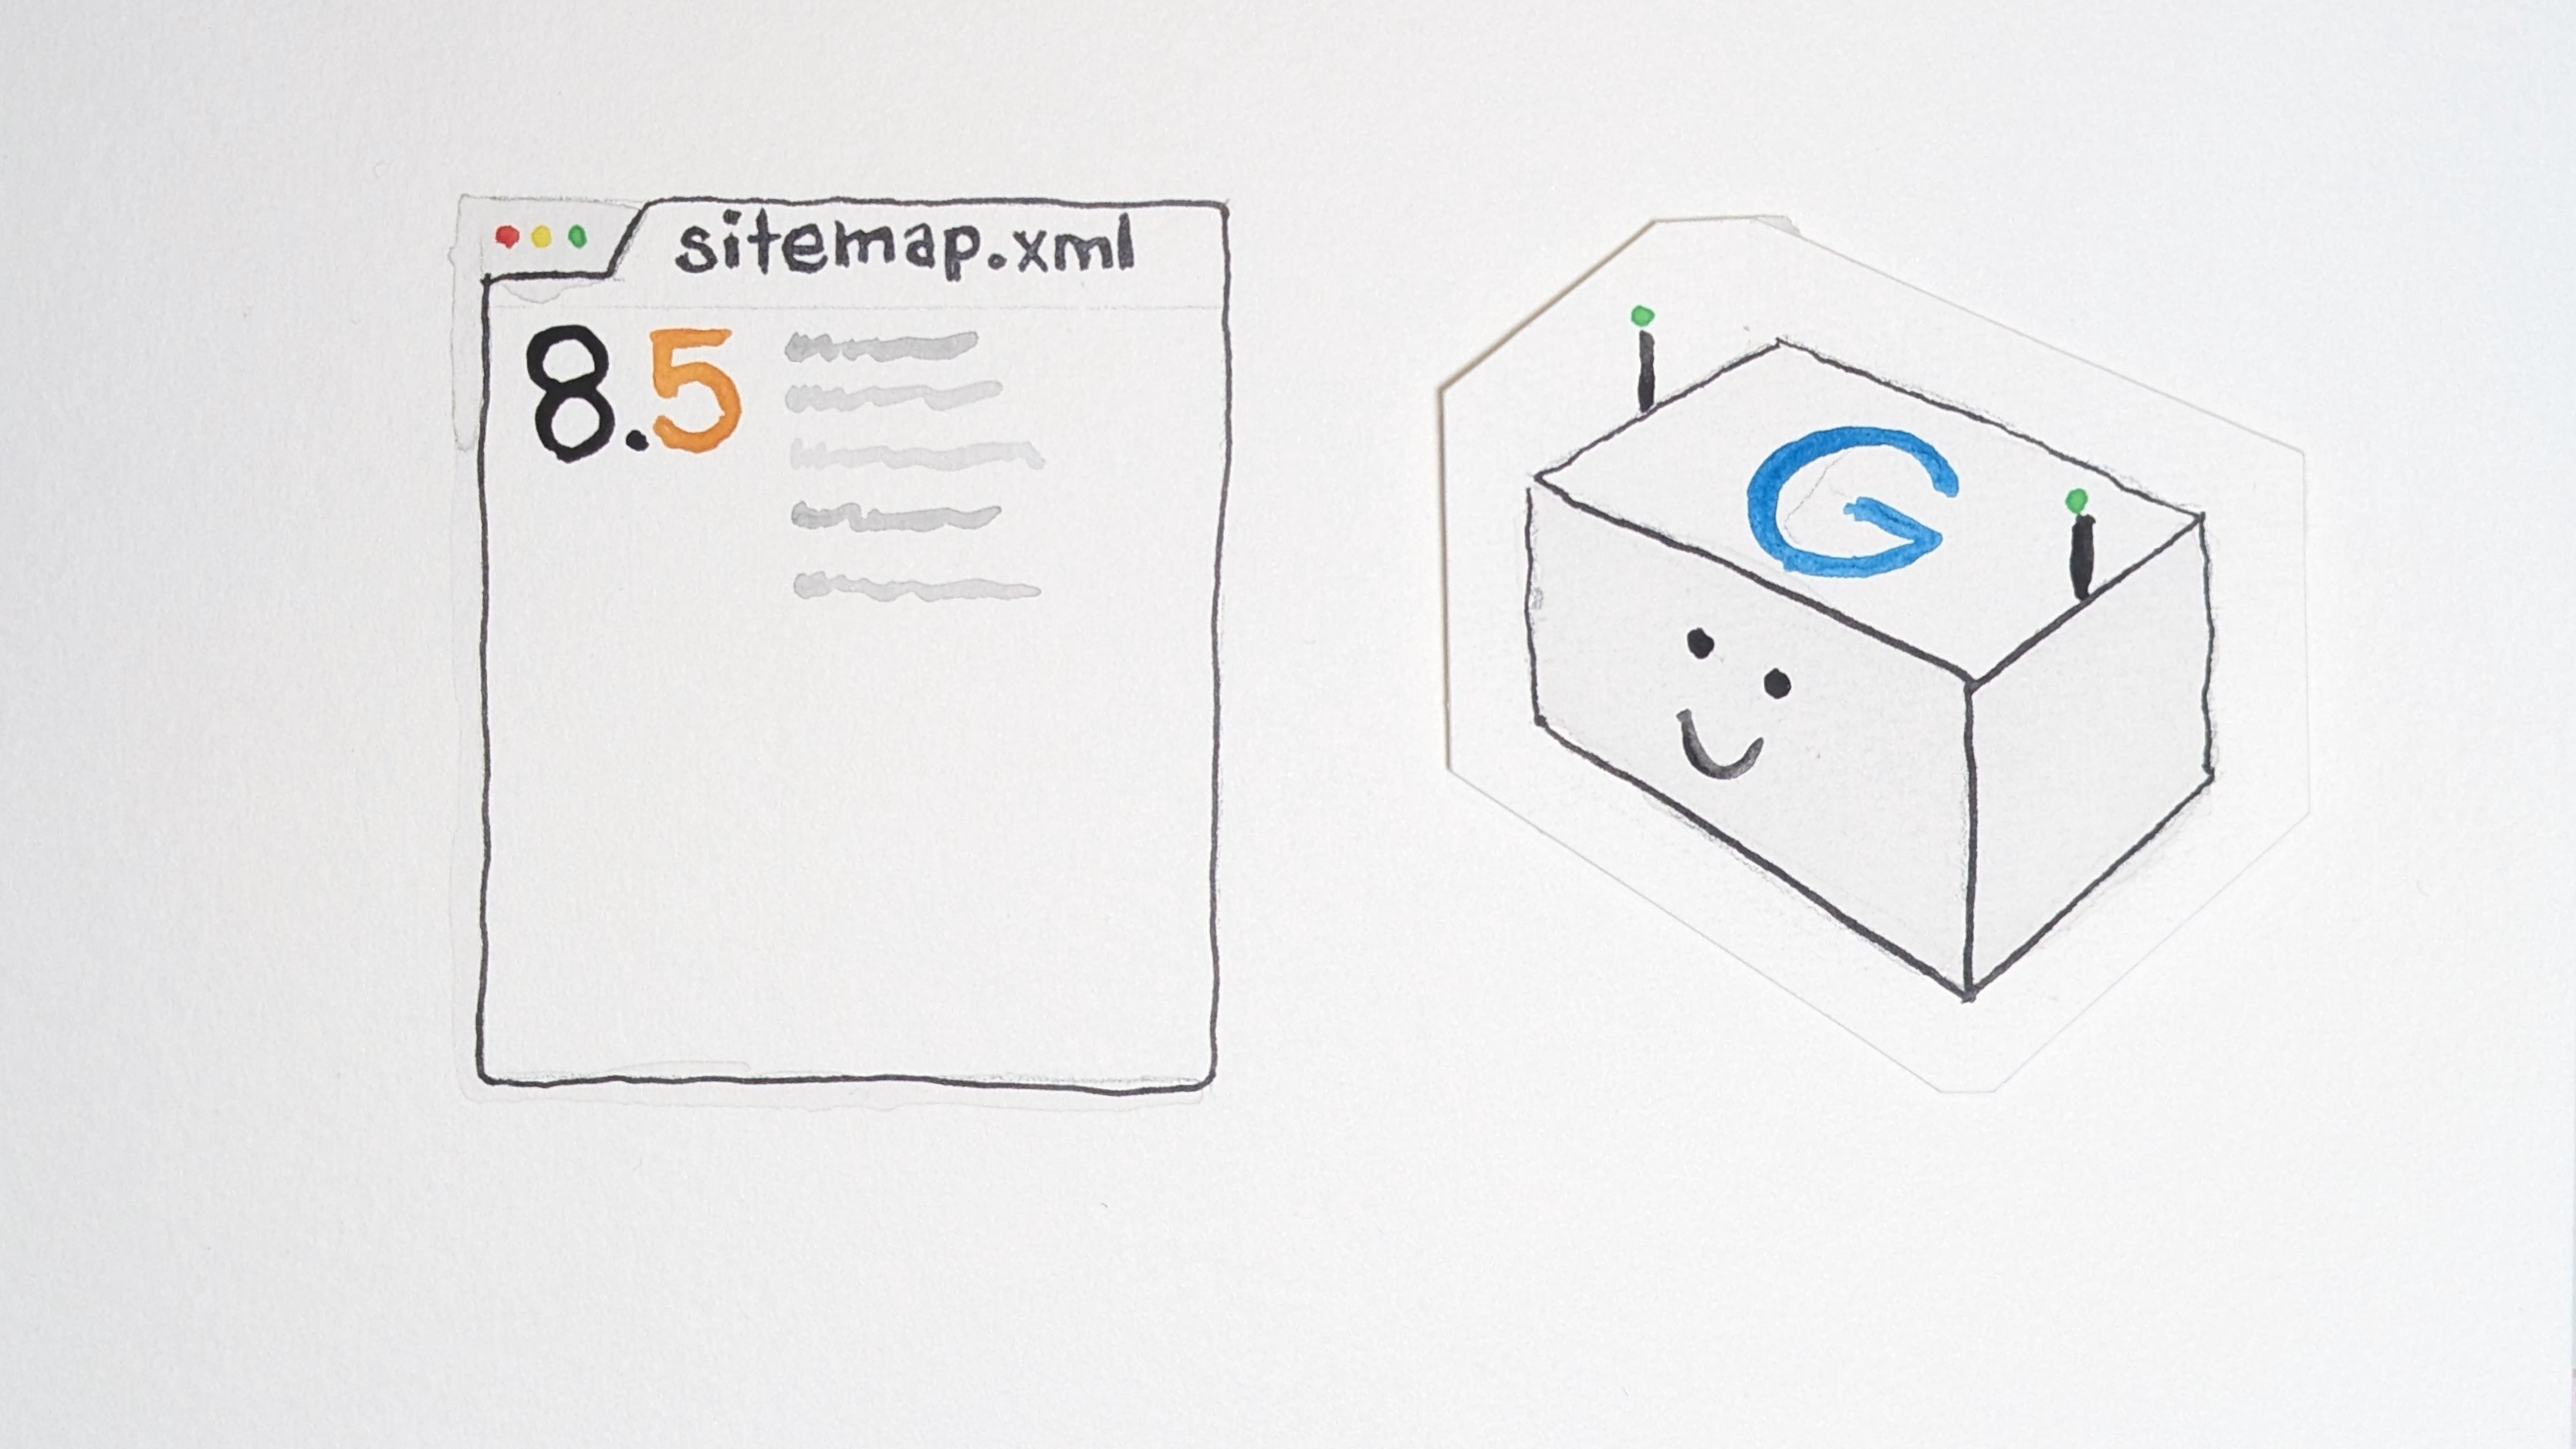 sitemap.xml
8.5
G